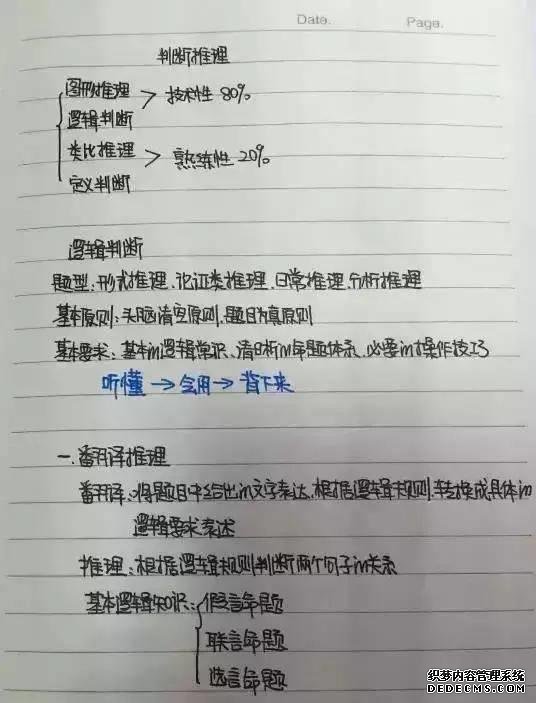 Date. Page.
判断推理
图形推理 > 技术性 80%
逻辑判断
类比推理 > 熟练性 20%
定义判断
逻辑判断
题型:形式推理、论证类推理、日常推理、分析推理
基本原则:头脑清空原则、题目为真原则
基本要求:基本的逻辑常识、清晰的命题体系、必要的操作技巧
听懂→会用→背下来
一、翻译推理
翻译:将题目中给出的文字表达,根据逻辑规则,转换成具体的
逻辑要求表述
推理:根据逻辑规则判断两个句子的关系
基本逻辑知识:假言命题
联言命题
选言命题
织梦内容管理系统
DEDECMS.COM